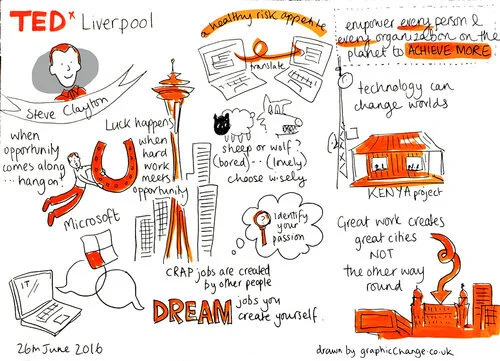 TEDx Liverpool
Steve Clayton
a healthy risk appetite
translate
empower every person &
every organization on the
planet to ACHIEVE MORE.
when
opportunity
comes along
... hang on!
Luck happens
when
hard
work
meets
opportunity
sheep or wolf?
(bored)... (lively)
choose wisely
technology can
change worlds
KENYA project
Microsoft
identify
your
passion
Great work creates
great cities
NOT
the other way
round
IT
CRAP jobs are created
by other people
DREAM jobs you
create yourself.
26th June 2016
drawn by graphicchange.co.uk